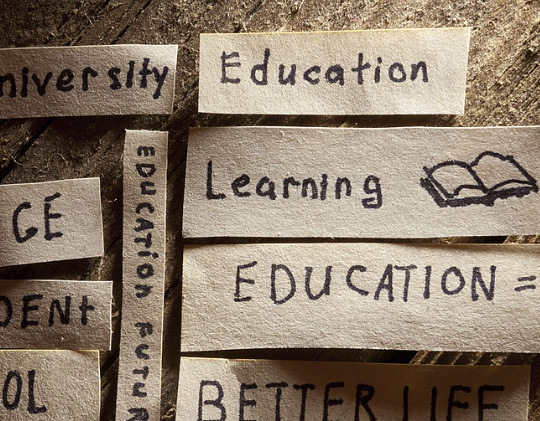 niversity
Education
Learning
GE
EDUCATION FUTUR
EDUCATION =
DENt
OL
BETTER LIFE